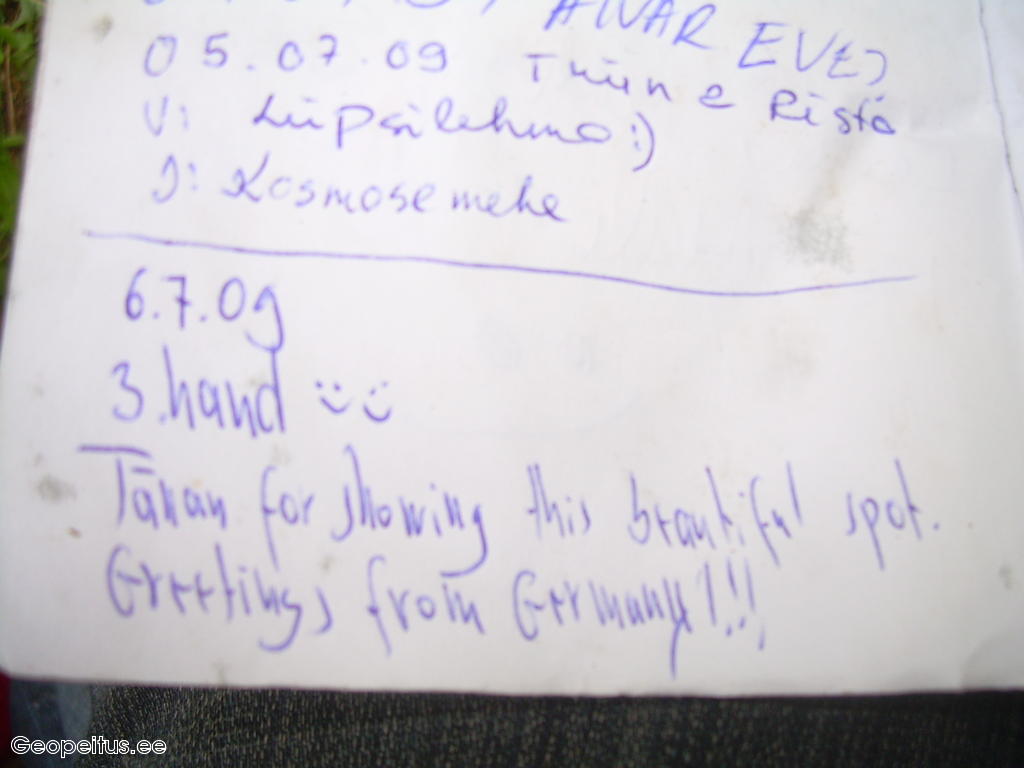 AIVAR EVE
05.07.09 Triin e Risto
V: Lüpsilehma :)
J: Kosmosemehe
6.7.09
3.hand
Tänan for showing this beautiful spot.
Greetings from Germany!!!
Geopeitus.ee